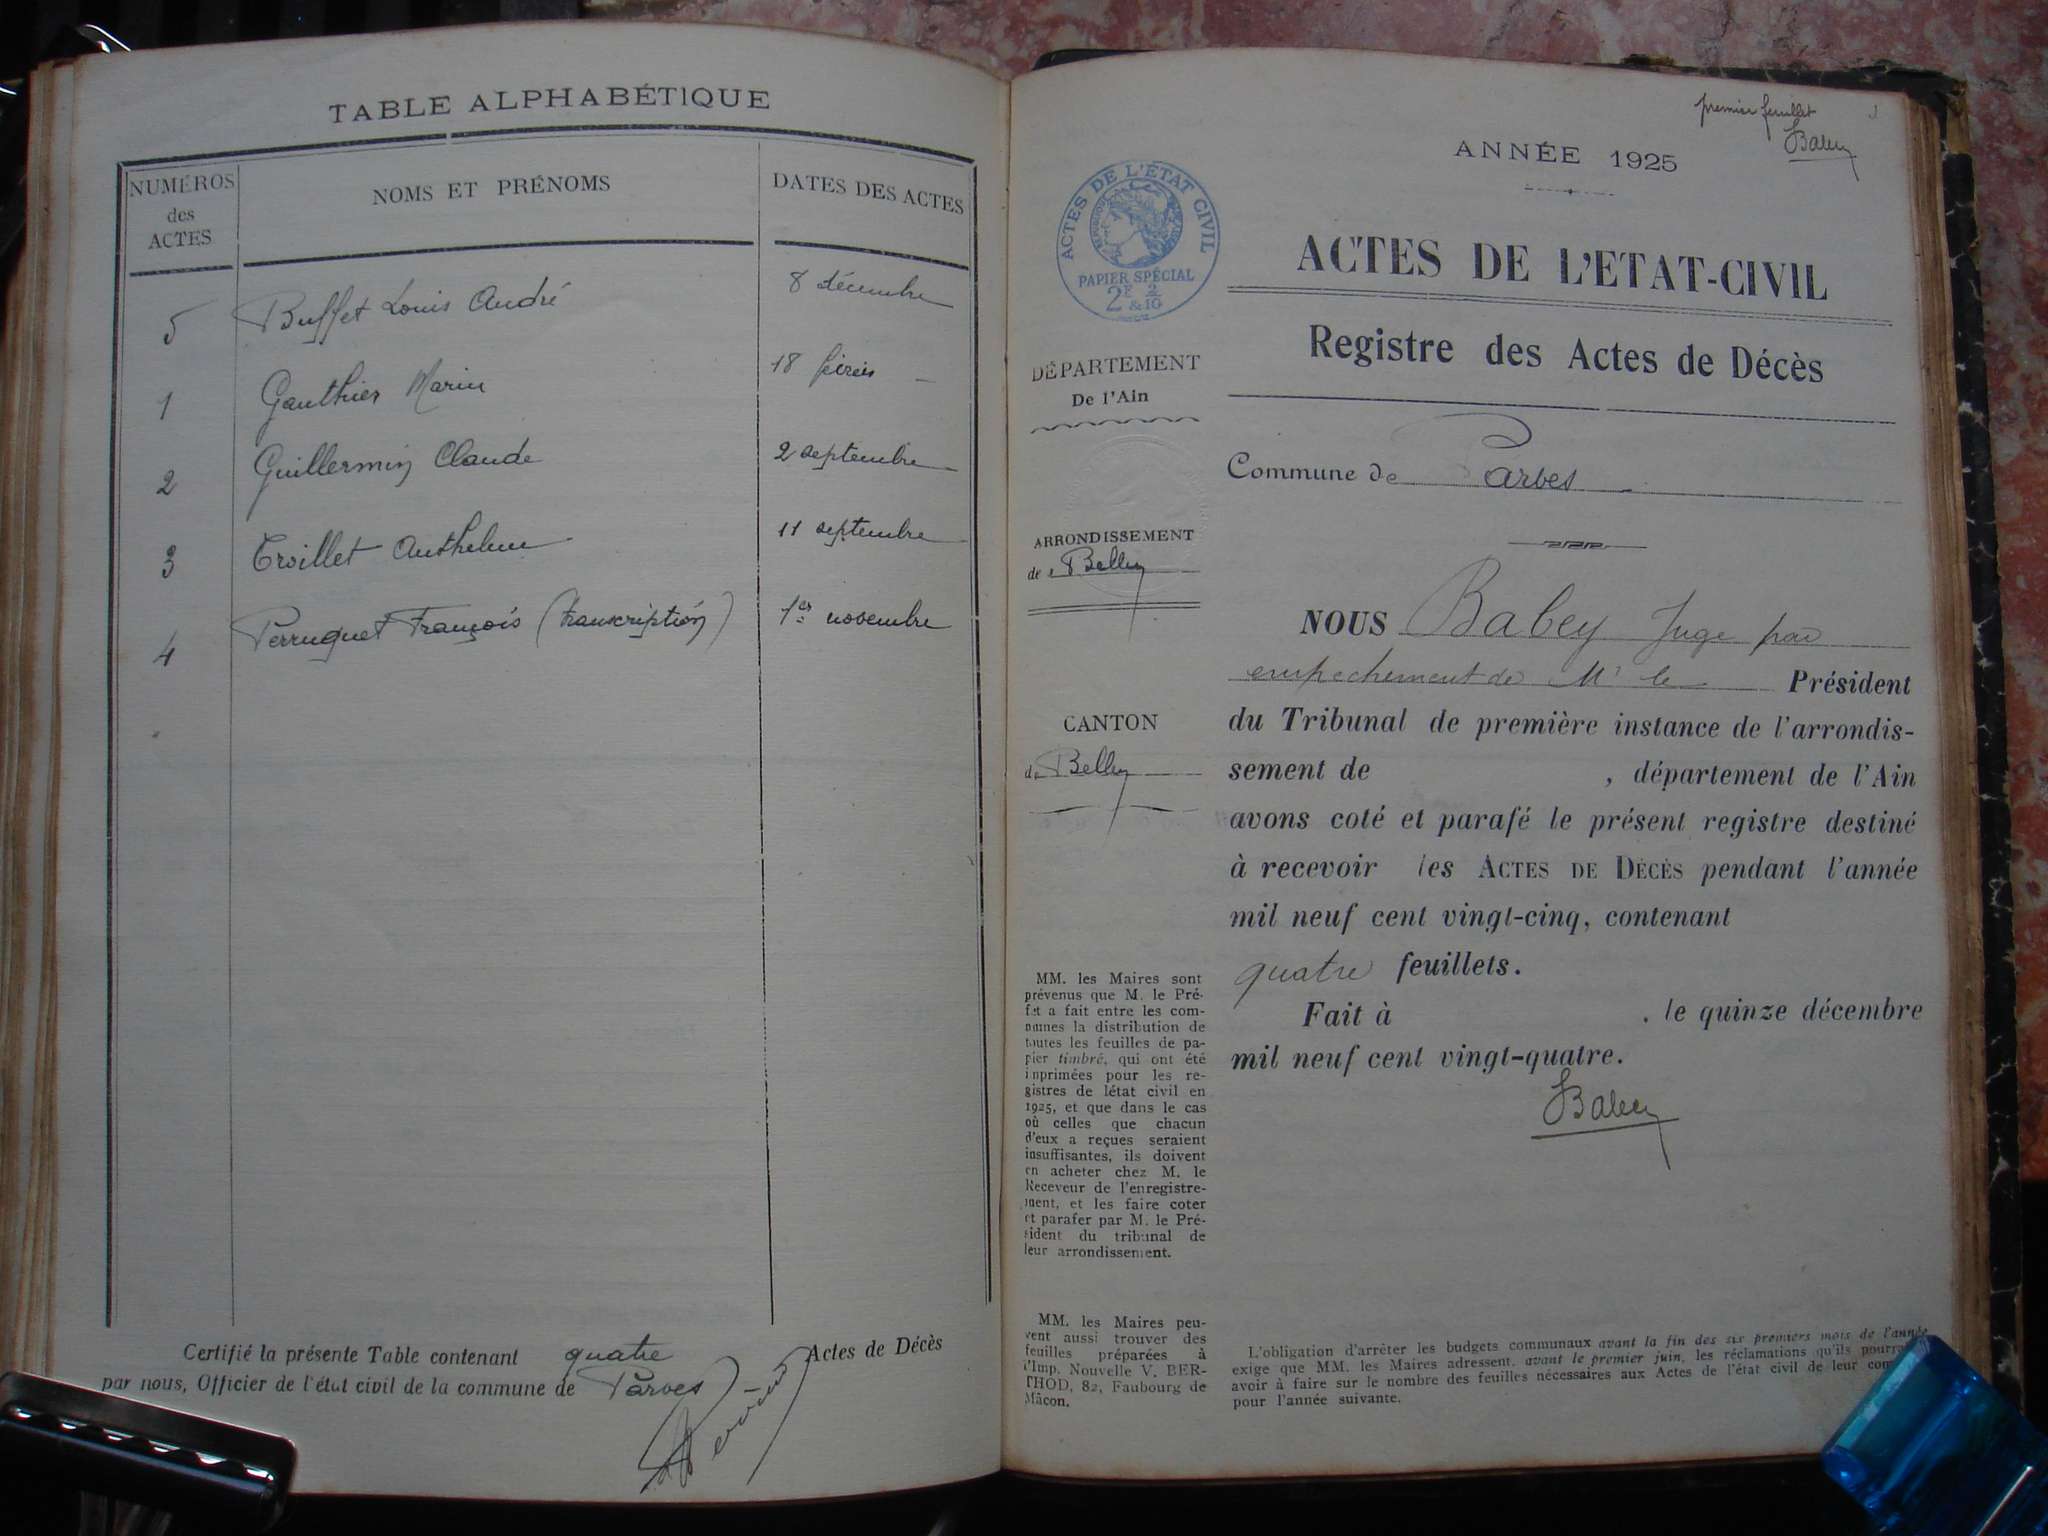 TABLE ALPHABÉTIQUE
NUMÉROS
des
ACTES
NOMS ET PRÉNOMS
DATES DES ACTES
5 Buffet Louis André 8 décembre
1 Gauthier Marin 18 février
2 Guillermin Claude 2 septembre
3 Troillet Anthelme 11 septembre
4 Perruquet François (transcription) 1er novembre
Certifié la présente Table contenant quatre Actes de Décès
par nous, Officier de l'état civil de la commune de Parves
premier feuillet 1
Babey
ANNÉE 1925
ACTES DE L'ÉTAT CIVIL
RÉPUBLIQUE
PAPIER SPÉCIAL
2F 2
&10
ACTES DE L'ETAT-CIVIL
Registre des Actes de Décès
DÉPARTEMENT
De l'Ain
Commune de Parves
ARRONDISSEMENT
de Belley
CANTON
de Belley
NOUS Babey Juge par
empechement de Mr le Président
du Tribunal de première instance de l'arrondis-
sement de , département de l'Ain
avons coté et parafé le présent registre destiné
à recevoir les ACTES DE DÉCÈS pendant l'année
mil neuf cent vingt-cinq, contenant
quatre feuillets.
Fait à , le quinze décembre
mil neuf cent vingt-quatre.
Babey
MM. les Maires sont
prévenus que M. le Pré-
fet a fait entre les com-
munes la distribution de
toutes les feuilles de pa-
pier timbré, qui ont été
imprimées pour les re-
gistres de létat civil en
1925, et que dans le cas
où celles que chacun
d'eux a reçues seraient
insuffisantes, ils doivent
en acheter chez M. le
Receveur de l'enregistre-
ment, et les faire coter
et parafer par M. le Pré-
sident du tribunal de
leur arrondissement.
MM. les Maires peu-
vent aussi trouver des
feuilles préparées à
l'Imp. Nouvelle V. BER-
THOD, 82, Faubourg de
Mâcon.
L'obligation d'arrêter les budgets communaux avant la fin des six premiers mois de l'année
exige que MM. les Maires adressent, avant le premier juin, les réclamations qu'ils pourraient
avoir à faire sur le nombre des feuilles nécessaires aux Actes de l'état civil de leur com
pour l'année suivante.